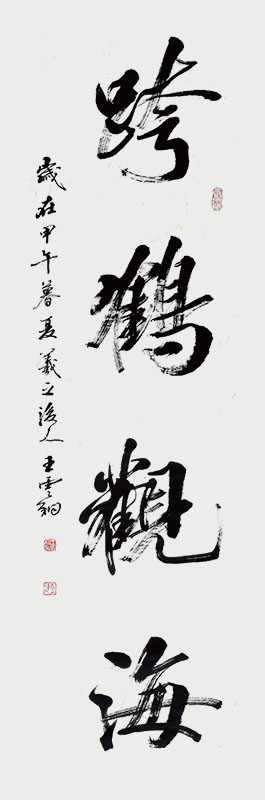 跨鶴觀海
歲在甲午暮夏羲之後人王雲